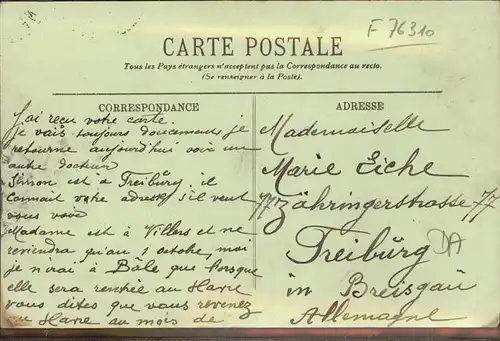 F 76310
CARTE POSTALE
Tous les Pays étrangers n'acceptent pas la Correspondance au recto.
(Se renseigner à la Poste).
CORRESPONDANCE
J'ai reçu votre carte.
je vais toujours doucement je
retourne aujourd'hui voir un
autre docteur
Simon est à Freiburg il
connait votre adresse s'il veut
vous voir
Madame est à Villers et ne
reviendra qu'au 1 octobre, moi
je n'irai à Bâle que lorsque
elle sera rentrée au Havre
vous dites que vous revenez
au Havre au mois de
ADRESSE
Mademoiselle
Marie Eiche
77 Zähringerstrasse 77
Freibürg
in Breisgaü
Allemagne
DA